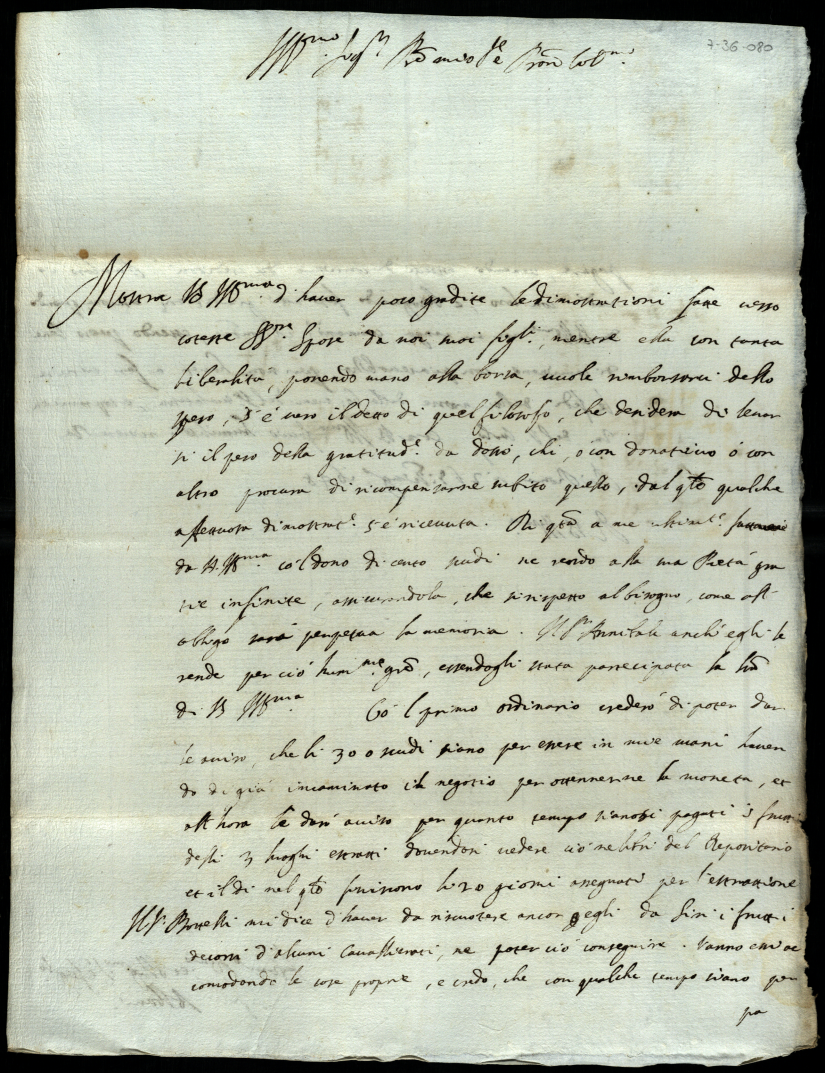 7-36-080
Ill.mo Sig.r Pron Col.mo
Mostra V.S. Ill.ma d'haver poco gradite le dimostrationi fatte verso
coteste SS.re Spose da noi suoi fig.li, mentre ella con tanta
liberalità, ponendo mano alla borsa, vuole rimborsarci dello
speso, s'è vero il detto di quel filosofo, che desidera di levar
si il peso della gratitud.e da dosso, chi, o con donativo ò con
altro procura di ricompensarne subito quello, dal q.to qualche
affettuosa dimostrat.e s'è ricevuta. Di q.ta a me ultim.te
da V.S. Ill.ma co 'l dono di cento scudi ne rendo alla sua Pietà gra
tie infinite, assicurandola, che si rispetto al bisogno, come all'
obligo sarà perpetua la memoria. Il S.r Annibale anch'egli le
rende per ciò hum.me gr.e, essendogli stata partecipata la l.ra
di V.S. Ill.ma Co 'l primo ordinario crederò di poter dar
le aviso, che li 300 scudi siano per essere in mie mani haven
do di già incaminato il negotio per ottennersine la moneta, et
all'hora le darò aviso per quanto tempo sianosi pagati i frutti
delli 3 luoghi estratti dovendosi vedere ciò ne libri del Depositario
et il dì nel q.to finirono li 20 giorni assegnati per l'estrattione
Il S.r Borelli mi dice d'haver da riscuotere ancor egli da Siri i frutti
decorsi d'alcuni Cavallierati, ne poter ciò conseguire. Vanno essi ac
comodando le cose proprie, e credo, che con qualche tempo siano per
pa